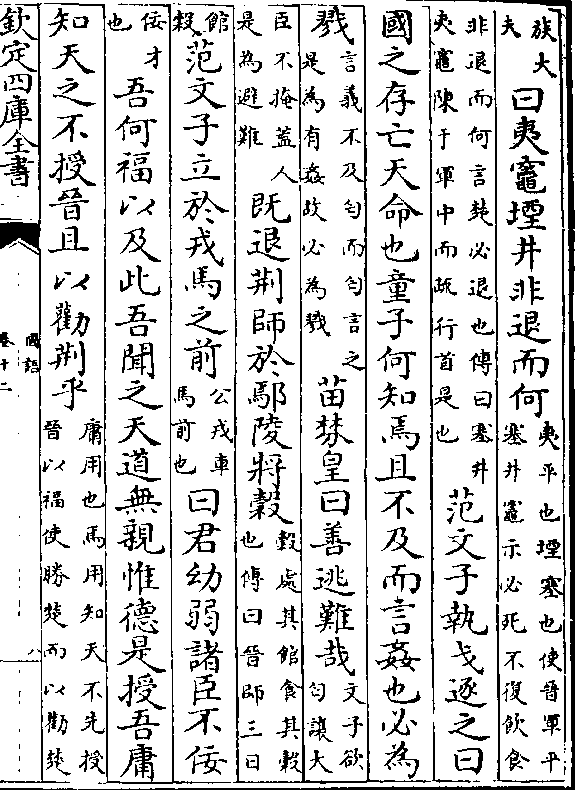 族大夫曰夷竈堙井非退而何夷平也堙塞也使晉軍平塞井竈示必死不復飲食
非退而何言楚必退也傳曰塞井夷竈陳于軍中而疏行首是也范文子執戈逐之曰
國之存亡天命也童子何知焉且不及而言姦也必為
戮言義不及匄而匄言之是為有姦故必為戮苗棼皇曰善逃難哉文子欲匄讓大
臣不掩蓋人是為避難既退荊師於鄢陵將穀穀處其館食其穀也傳曰晉師三日
館穀范文子立於戎馬之前公戎車馬前也曰君幼弱諸臣不佞
佞才也吾何福以及此吾聞之天道無親惟德是授吾庸
知天之不授晉且以勸荊乎庸用也焉用知天不先授晉以福使勝楚而以勸楚
欽定四庫全書
國語
卷十二
八